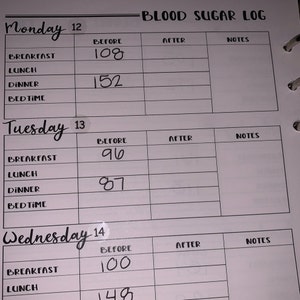 BLOOD SUGAR LOG
Monday 12
BEFORE AFTER NOTES
BREAKFAST 108
LUNCH
DINNER 152
BEDTIME
Tuesday 13
BEFORE AFTER NOTES
BREAKFAST 96
LUNCH
DINNER 87
BEDTIME
Wednesday 14
BEFORE AFTER NOTES
BREAKFAST 100
LUNCH
148